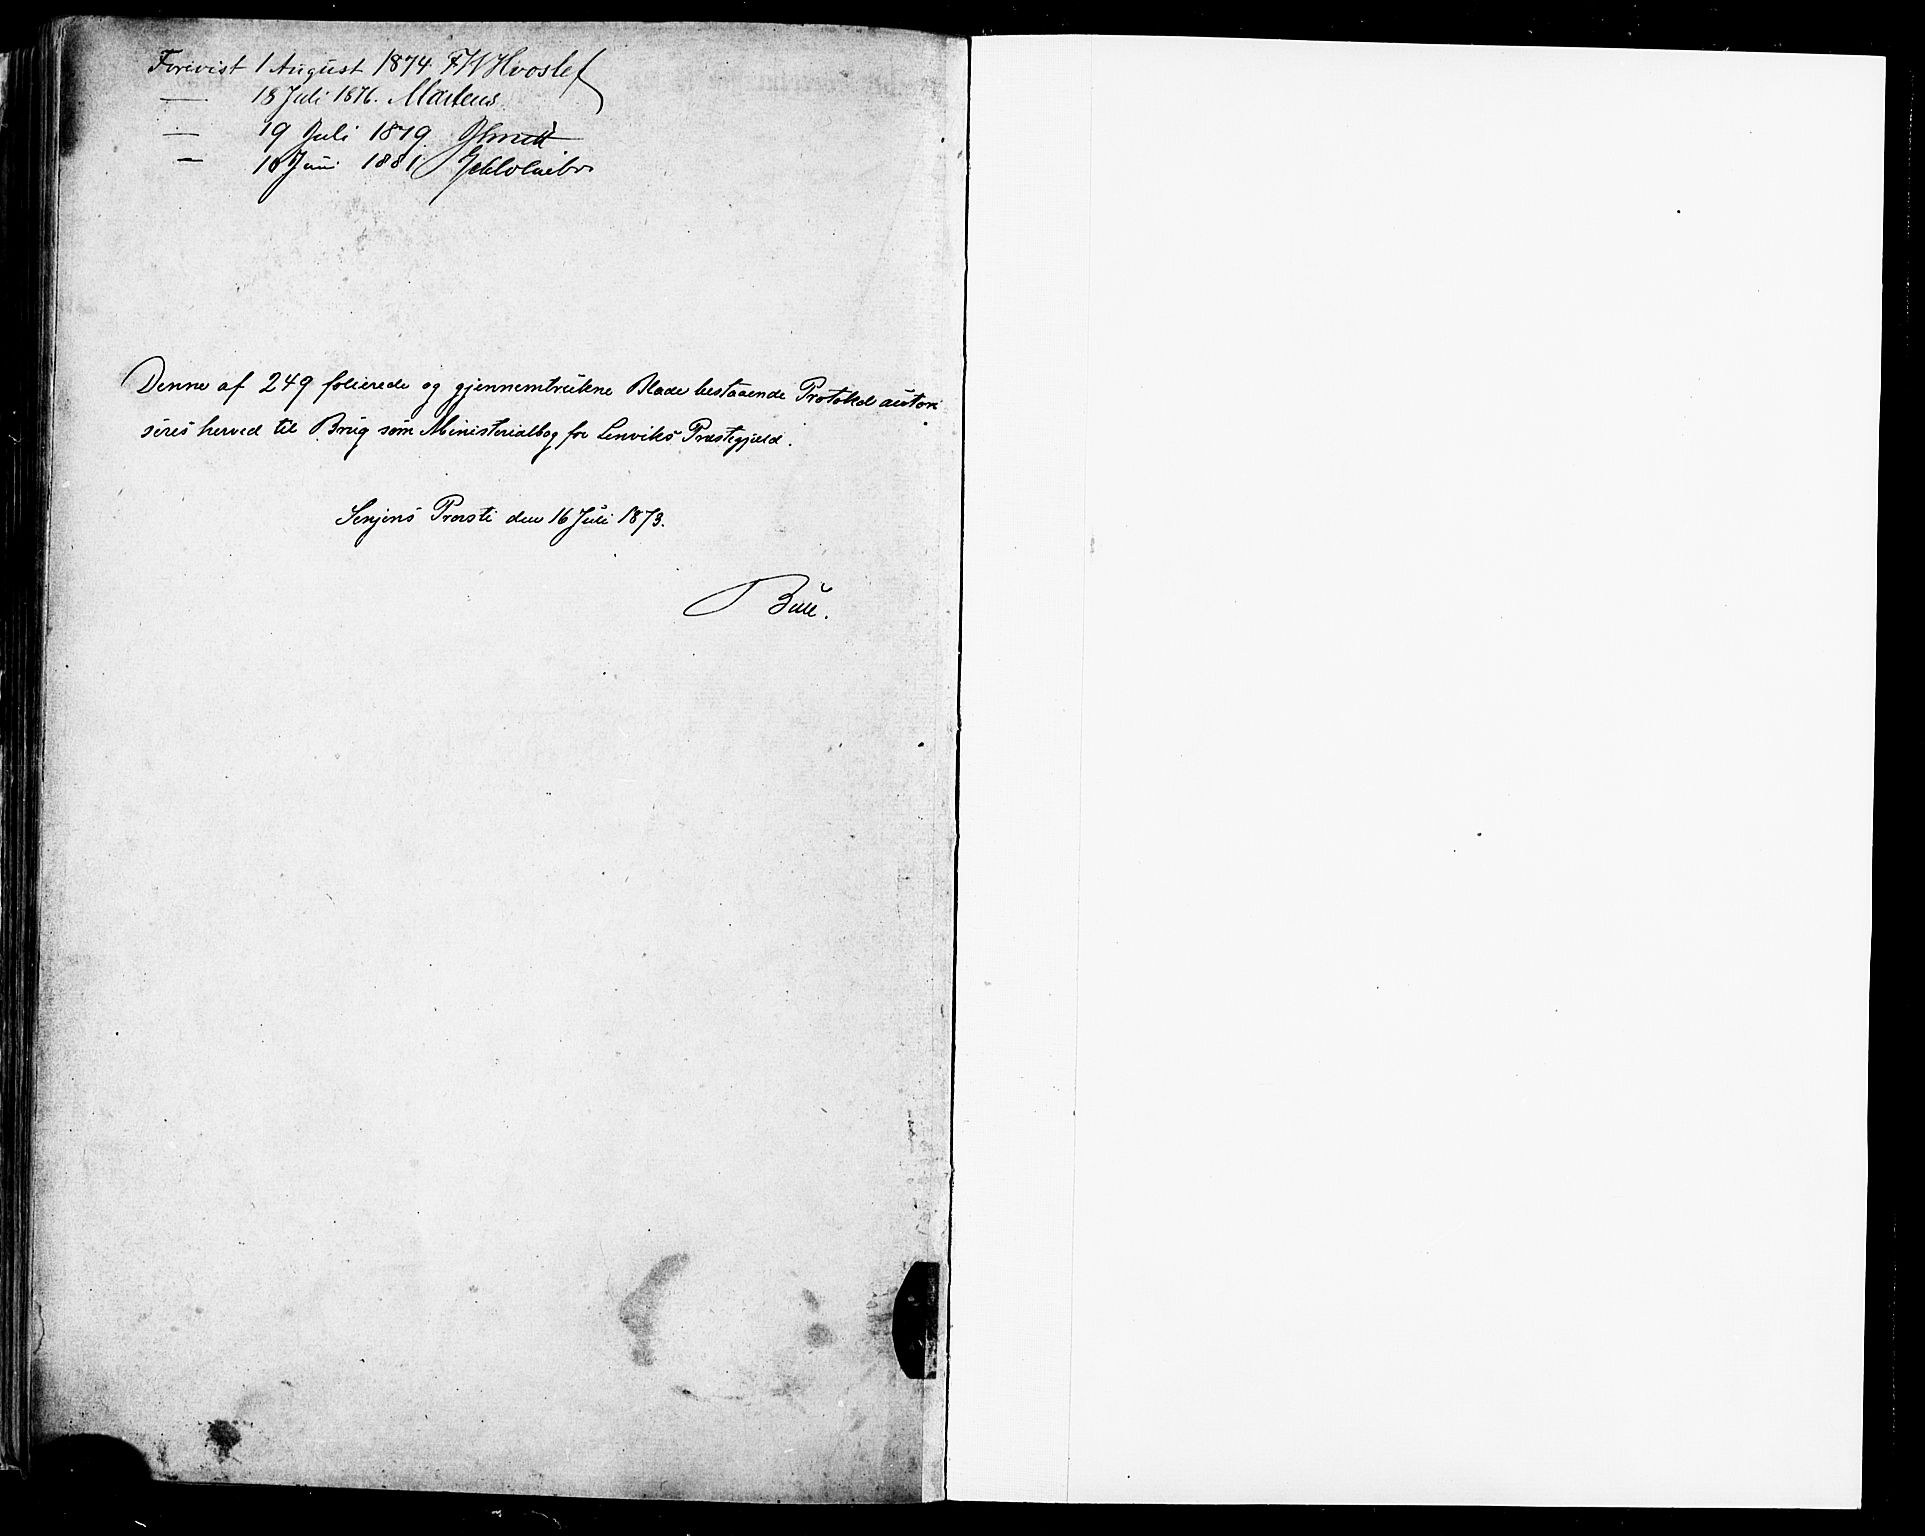 Forevist 1 August 1874. FWHvoslef
— 18 Juli 1876. Martens
— 19 Juli 1879.
— 10 Juni 1881
Denne af 249 folierede og gjennemtrukne Blade bestaaende Protokol autori
seres herved til Brug som Ministerialbog for Lenviks Præstegjæld.
Senjens Provsti den 16 Juli 1873.
Bull.